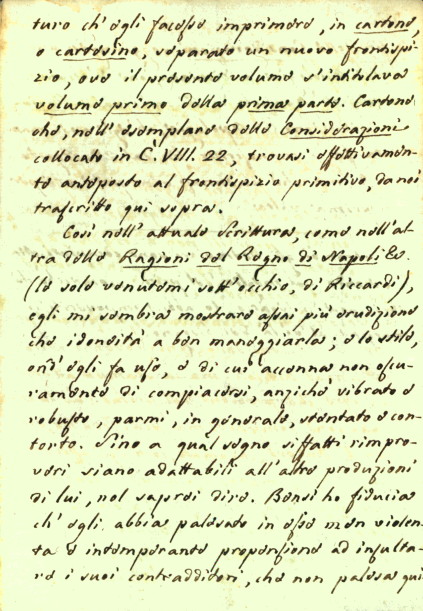 turo ch'egli facesse imprimere, in cartone,
o cartesino, separato un nuovo frontispi-
zio, ove il presente volume s'intitolava
volume primo della prima parte. Cartone
che, nell'esemplare delle Considerazioni
collocato in C. VIII. 22, trovasi effettivamen-
te anteposto al frontispizio primitivo, da noi
trascritto qui sopra.
Così nell'attuale Scrittura, come nell'al-
tra delle Ragioni del Regno di Napoli &c.
(le sole venutemi sott'occhio, di Riccardi),
egli mi sembra mostrare assai più erudizione
che idoneità a ben maneggiarla; e lo stile,
ond'egli fa uso, e di cui accenna non oscu-
ramente di compiacersi, anziché vibrato e
robusto, parmi, in generale, stentato e con-
torto. Sino a qual segno siffatti rimpro-
veri siano adattabili all'altre produzioni
di lui, nol saprei dire. Bensì ho fiducia
ch'egli abbia palesato in esse men violen-
ta e intemperante propensione ad insulta-
re i suoi contradditori, che non palesa qui